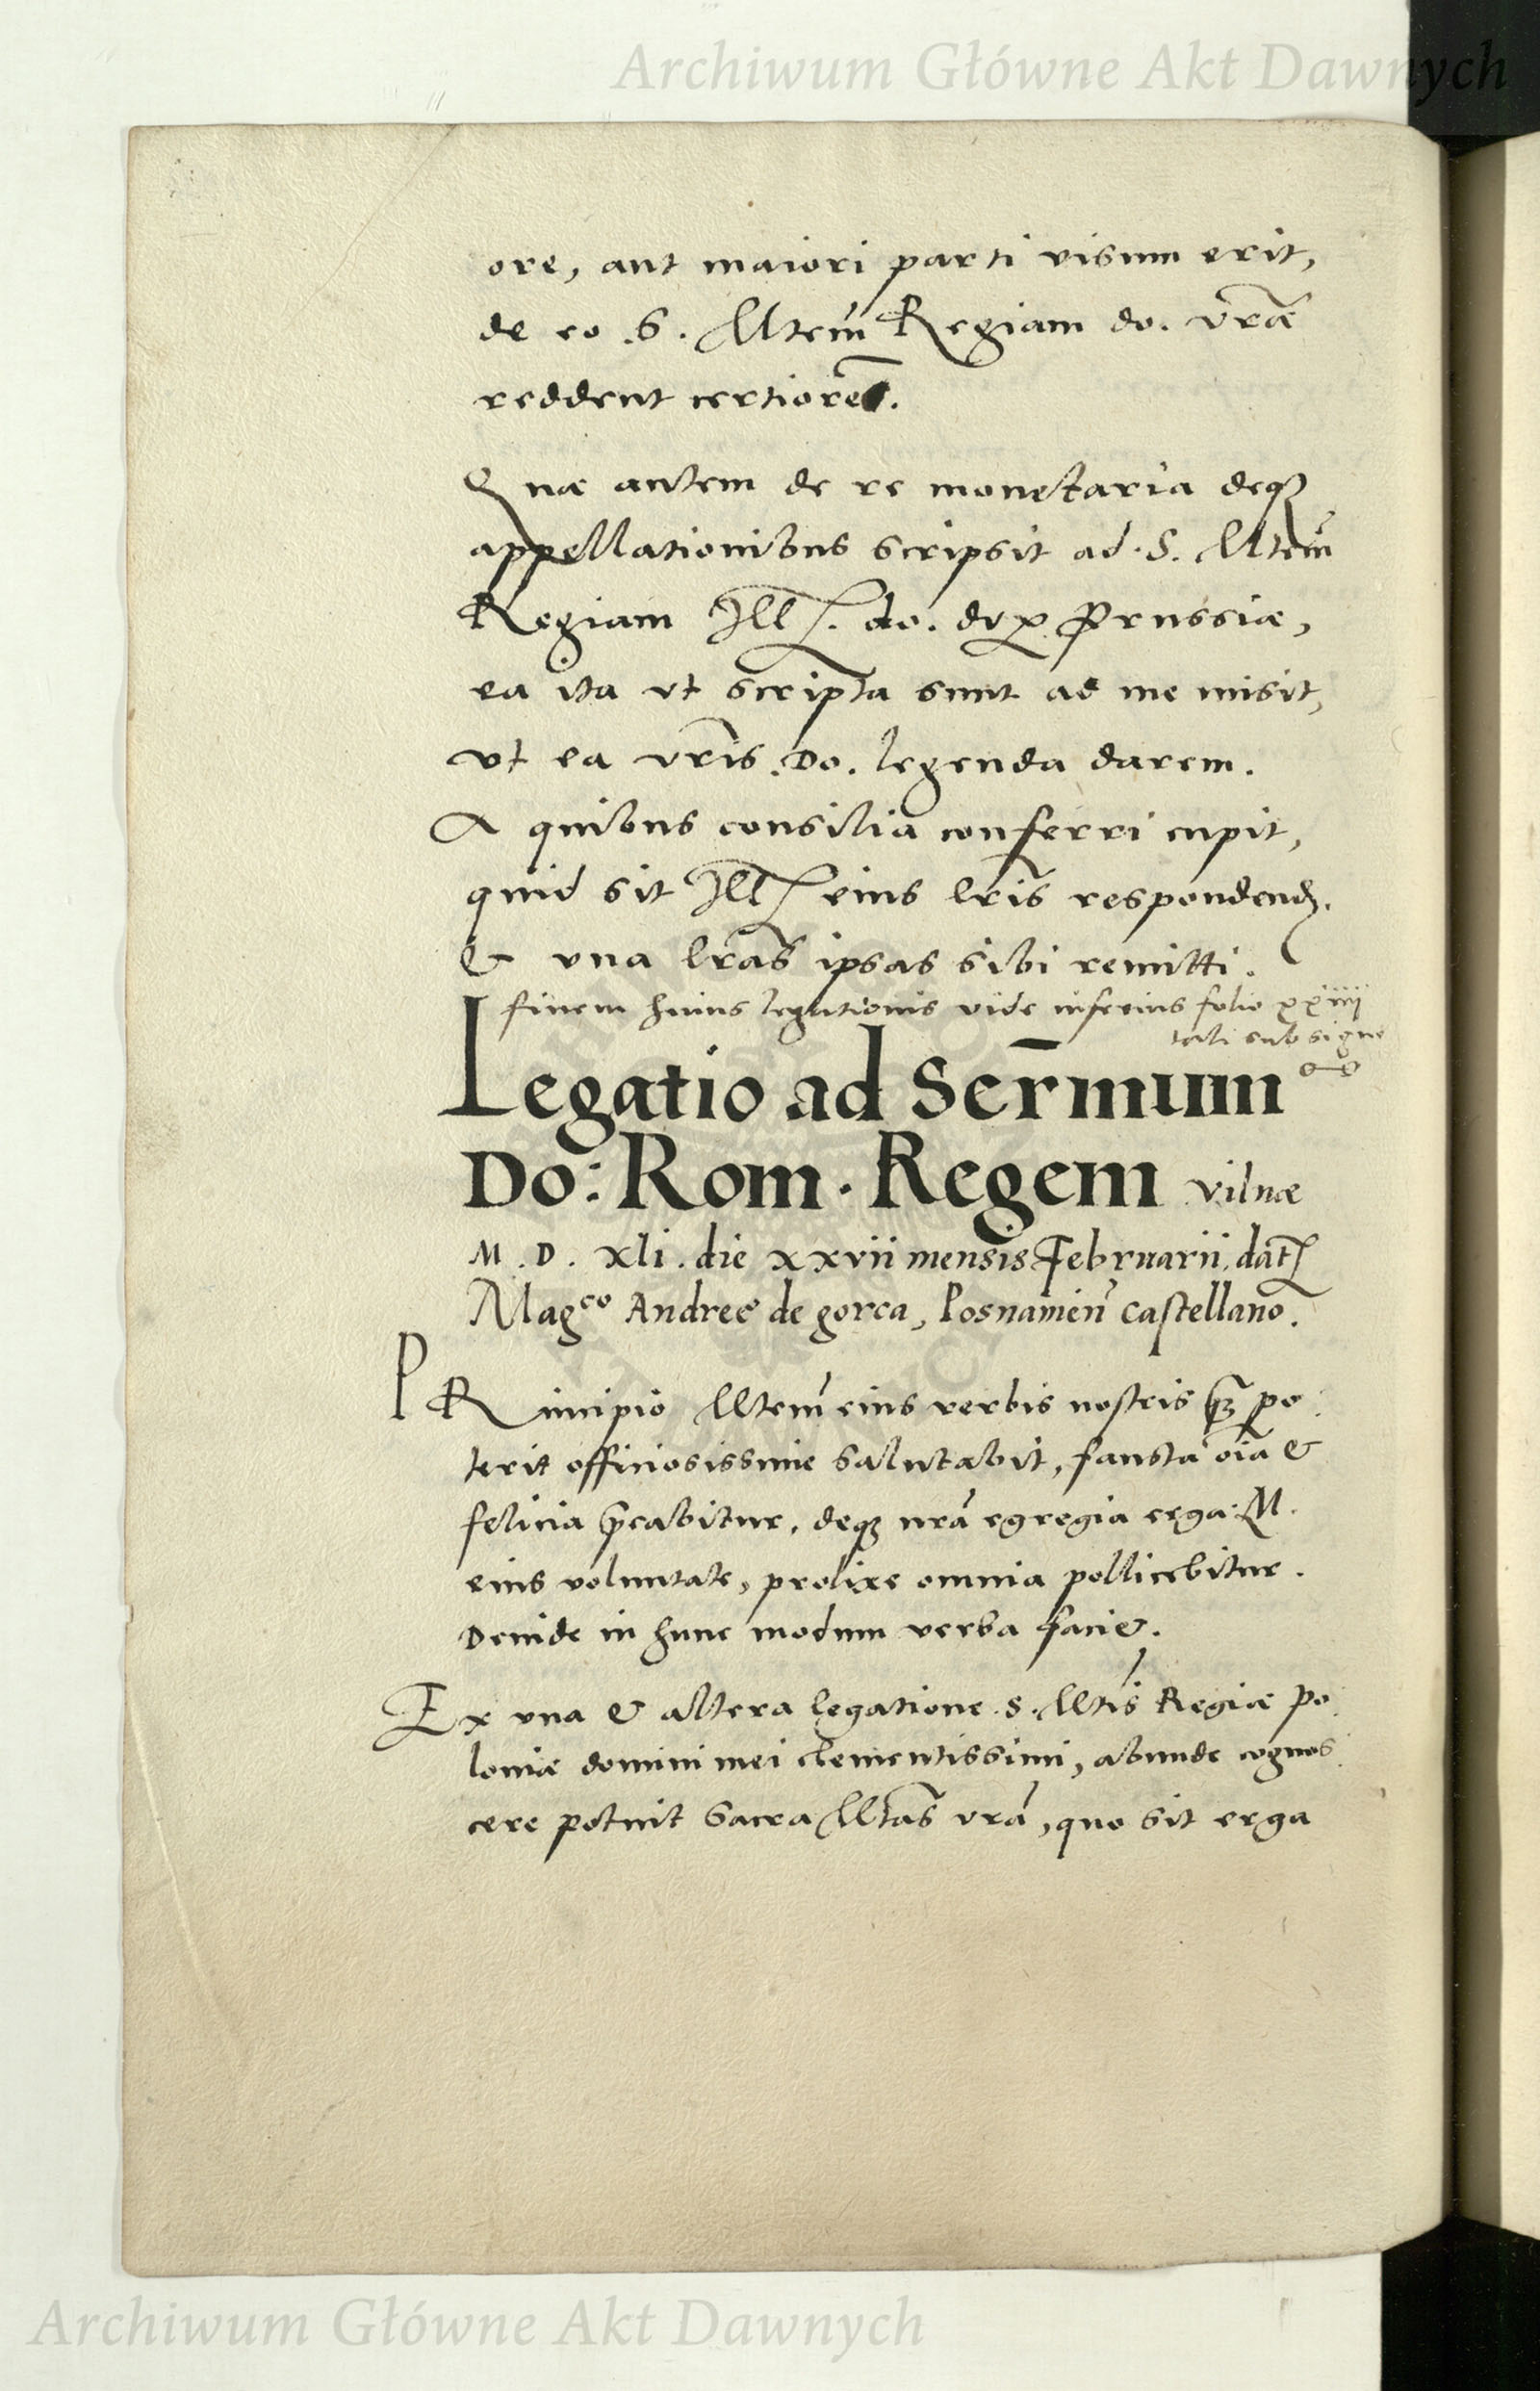 Archiwum Główne Akt Dawnych
ore, aut maiori parti visum erit,
de eo .S. Mtem̃ Regiam do. vrã̃e
reddent certiorẽ.
Quae autem de re monetaria deqꝫ
appellationibus scripsit ad .S. Mtem̃
Regiam Ill. do. dux Prussiae,
ea ita ut scripta sunt ad me misit,
ut ea vrĩs .Do. legenda darem.
A quibus consilia conferri cupit,
quid sit Ill eius lrĩs respondend.
& una lrãs ipsas sibi remitti.
finem huius legationis vide inferius folio xxiiii
tali sub signo
Legatio ad Serm̃um
Do: Rom. Regem vilnae
M. D. xli. die xxvii mensis Februarii. dat
Magco Andreę de gorca, Posnanień castellano.
PRincipio Mtem̃ eius verbis nostris qꝫ po
terit officiosissime salutabit, fausta oĩa &
felicia p̃cabitur, deqꝫ nrã egregia erga .M.
eius voluntate, prolixe omnia pollicebitur.
Deinde in hunc modum verba faci&.
Ex una & altera legatione .S. Mtis̃ Regiae Po
loniae domini mei clementissimi, abunde cognos
cere potuit Sacra Mtas̃ vrã, quo sit erga
Archiwum Główne Akt Dawnych